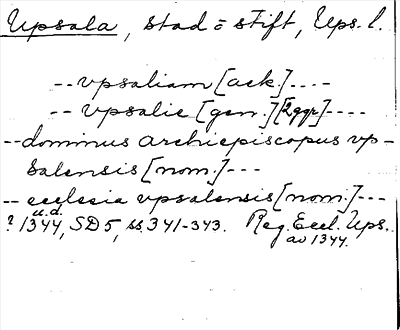 Upsala, stad o stift, Ups. l.
-- vpsaliam [ack.] ----
-- vpsalie [gen.] [2ggr] ----
-- dominus archiepiscopus vp-
salensis [nom.] ---
-- ecclesia vpsalensis [nom.] ---
u.d.
? 1344, SD 5, ss. 341-343. Reg. Eccl. Ups.
av 1344.